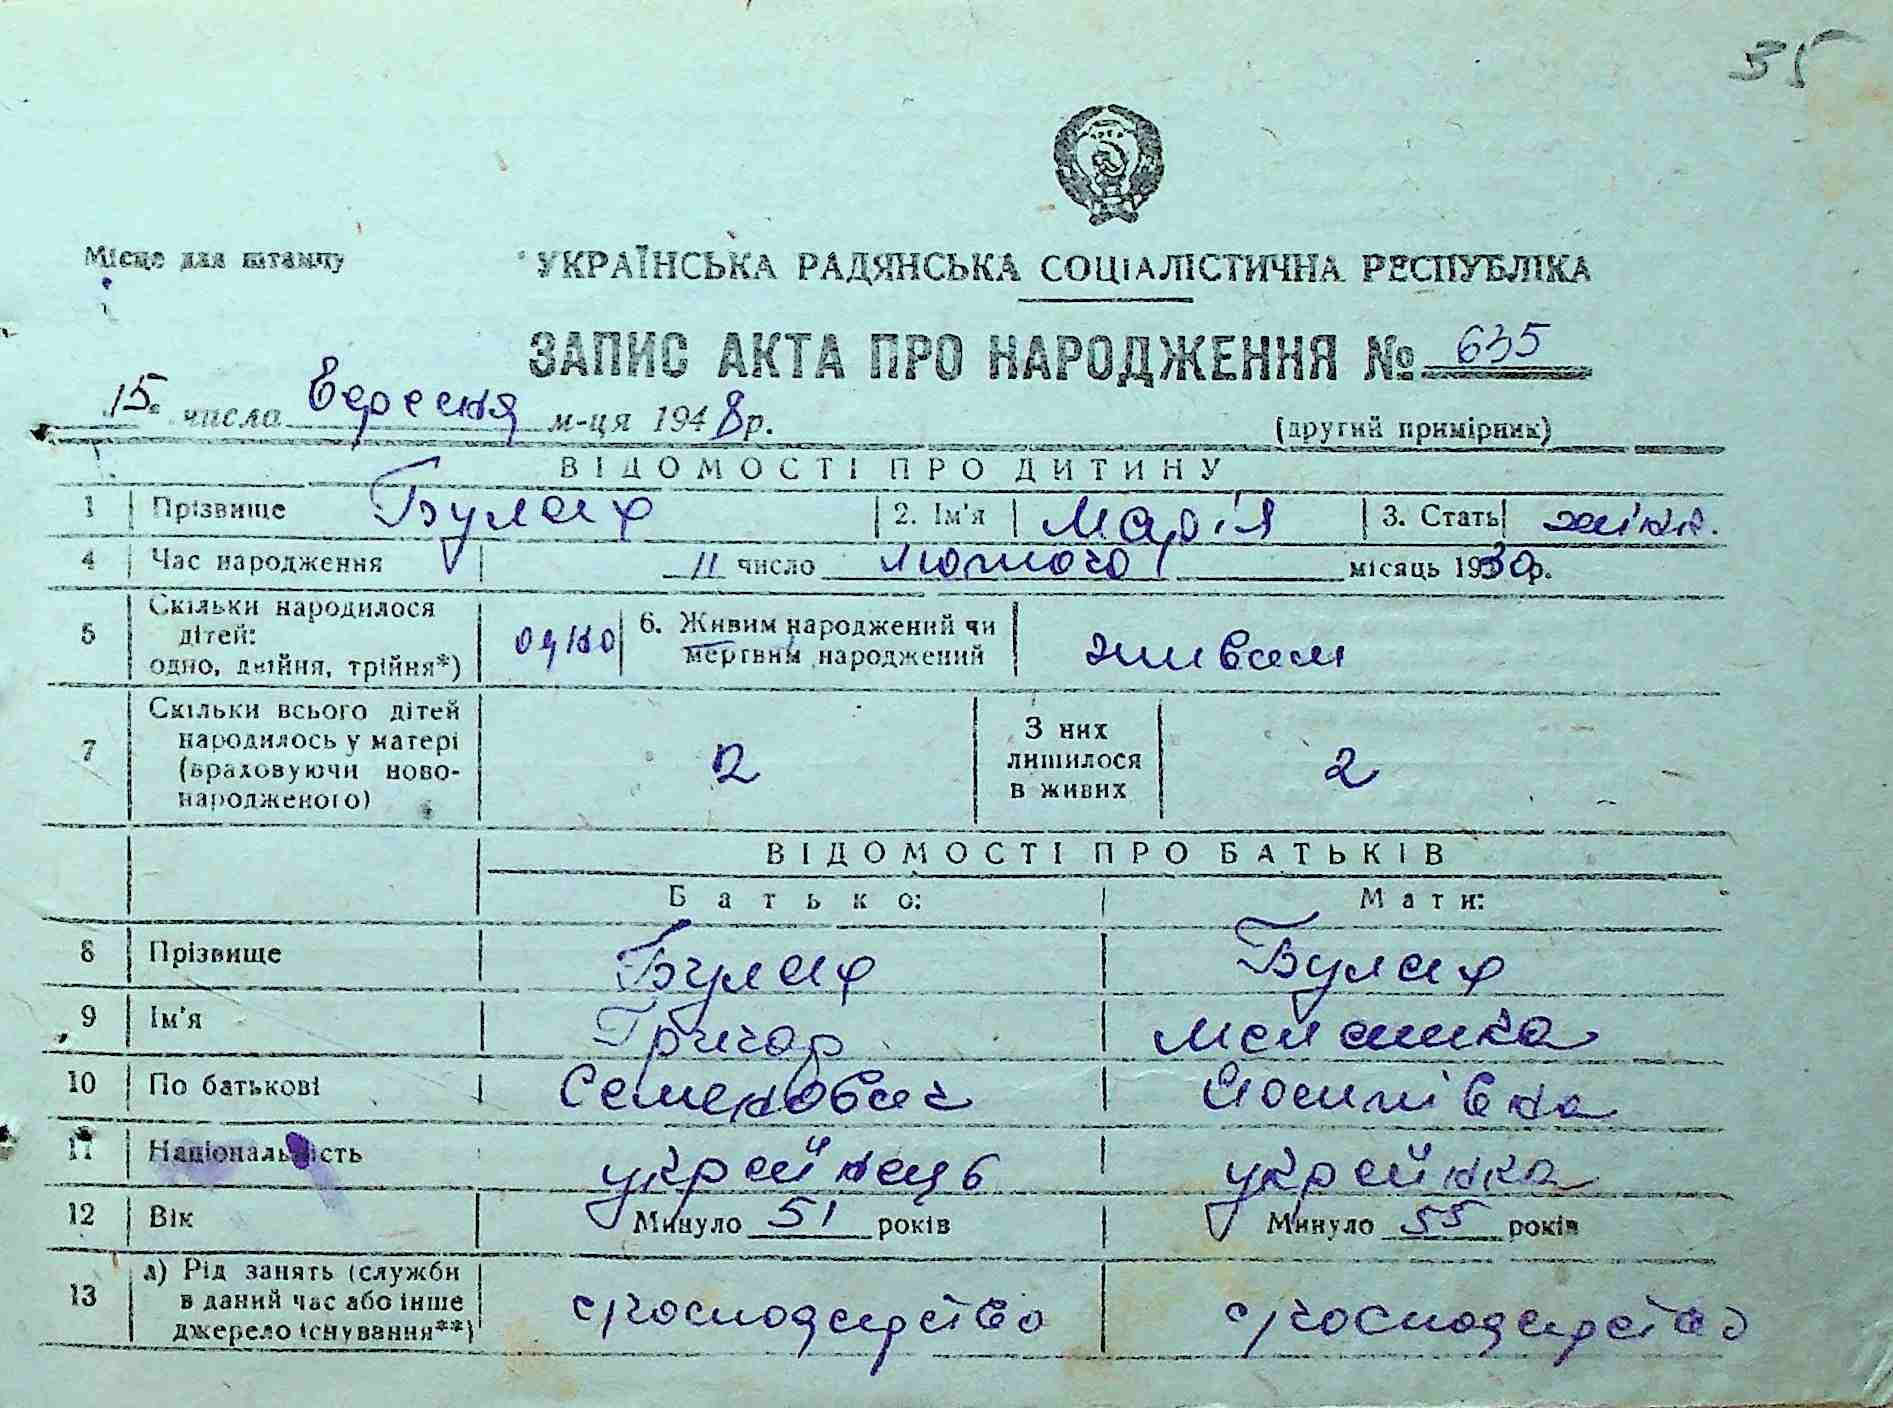 35
Місце для штампу
УКРАЇНСЬКА РАДЯНСЬКА СОЦІАЛІСТИЧНА РЕСПУБЛІКА
ЗАПИС АКТА ПРО НАРОДЖЕННЯ № 635
15 числа Вересня м-ця 1948 р.
(другий примірник)
ВІДОМОСТІ ПРО ДИТИНУ
1 Прізвище Булах 2. Ім'я Марія 3. Стать жінк.
4 Час народження 11 число лютого місяць 1930р.
5 Скільки народилося дітей: одно, двійня, трійня*) одно 6. Живим народжений чи мертвим народжений живим
7 Скільки всього дітей народилось у матері (враховуючи новонародженого) 2 З них лишилося в живих 2
ВІДОМОСТІ ПРО БАТЬКІВ
Батько: Мати:
8 Прізвище Булах Булах
9 Ім'я Григор
10 По батькові Семенович Йосипівна
11 Національність українець українка
12 Вік Минуло 51 років Минуло 55 років
13 а) Рід занять (служби в даний час або інше джерело існування**) с/господарство с/господарство